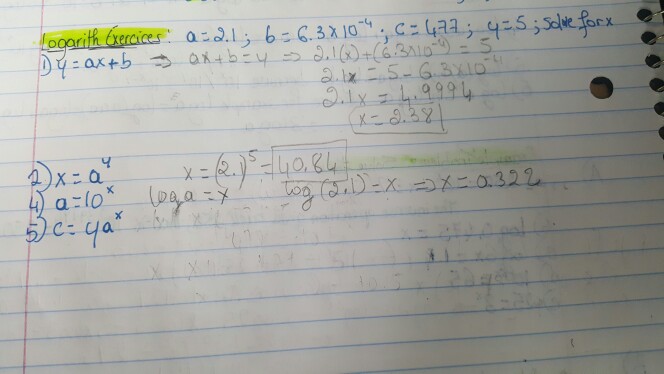 Logarith Exercices: a=2.1; b=6.3x10⁻⁴; c=477; y=5; Solve for x
1) y=ax+b ⇒ ax+b=y ⇒ 2.1(x)+(6.3x10⁻⁴)=5
2.1x=5-6.3x10⁻⁴
2.1x=4.9994
x=2.38
2) x=a^y x=(2.1)⁵=40.84
4) a=10ˣ log a=x log(2.1)=x ⇒x=0.322
5) c=ya^x